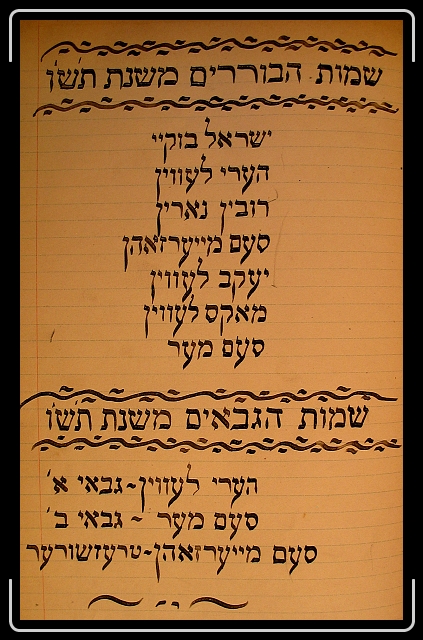 שמות הבוררים משנת תש״ו
ישראל בוקיי
הערי לעווין
רובין נארין
סעם מייערזאהן
יעקב לעווין
מאקס לעווין
סעם מער
שמות הגבאים משנת תש״ו
הערי לעווין-גבאי א׳
סעם מער - גבאי ב׳
סעם מייערזאהן-טרעזשורער